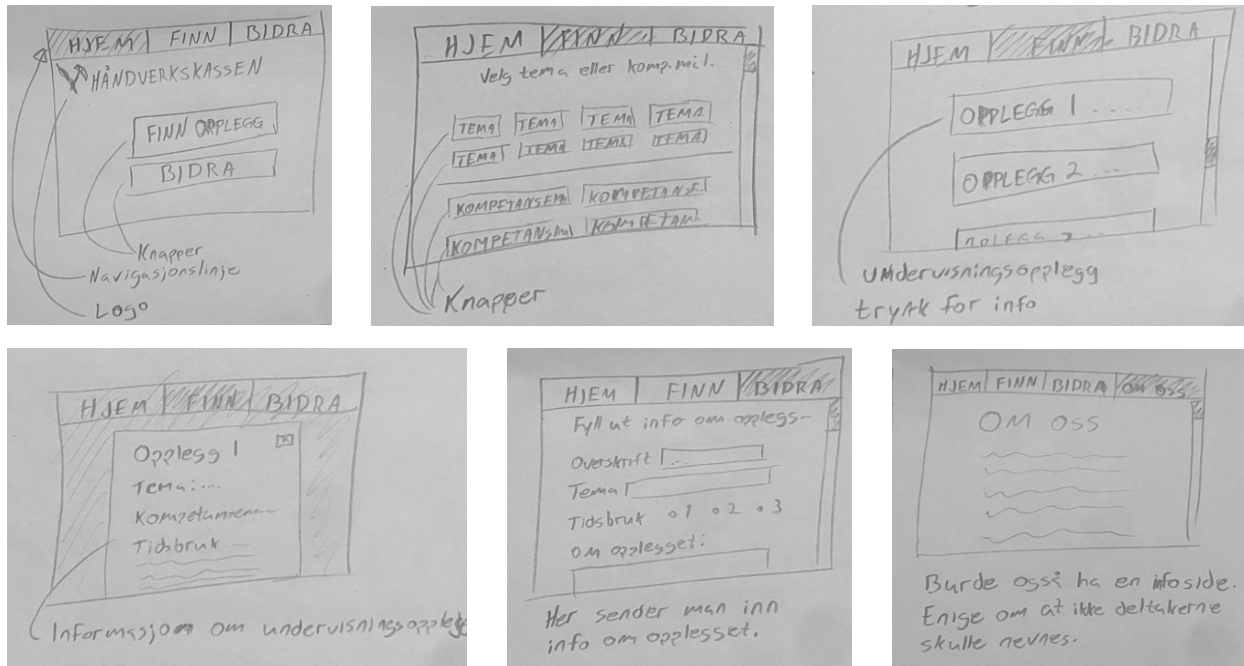 HJEM FINN BIDRA
HÅNDVERKSKASSEN
FINN OPPLEGG
BIDRA
Knapper
Navigasjonslinje
Logo
HJEM FINN BIDRA
Velg tema eller komp.mål.
TEMA TEMA TEMA TEMA
TEMA TEMA TEMA TEMA
KOMPETANSEM KOMPETANSE
Knapper
HJEM FINN BIDRA
OPPLEGG 1 ....
OPPLEGG 2 ...
Undervisningsopplegg
trykk for info
HJEM FINN BIDRA
Opplegg 1
Tema:...
Tidsbruk ...
Informasjon om undervisningsopplegg
HJEM FINN BIDRA
Fyll ut info om opplegg
Overskrift ...
Tema
Tidsbruk 1 2 3
OM opplegget:
Her sender man inn
info om opplegget.
HJEM FINN BIDRA OM OSS
OM OSS
Burde også ha en infoside.
Enige om at ikke deltakerne
skulle nevnes.